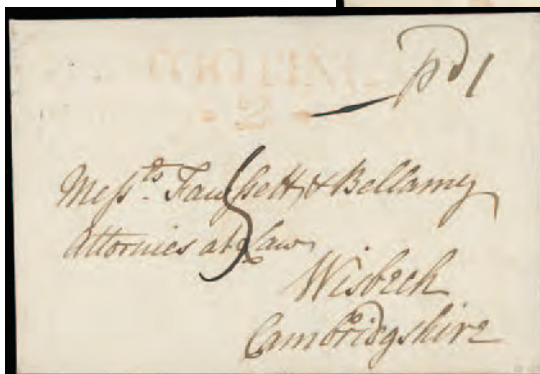 pd 1
5
Messrs. Fawssett & Bellamy
Attornies at Law
Wisbech
Cambridgshire